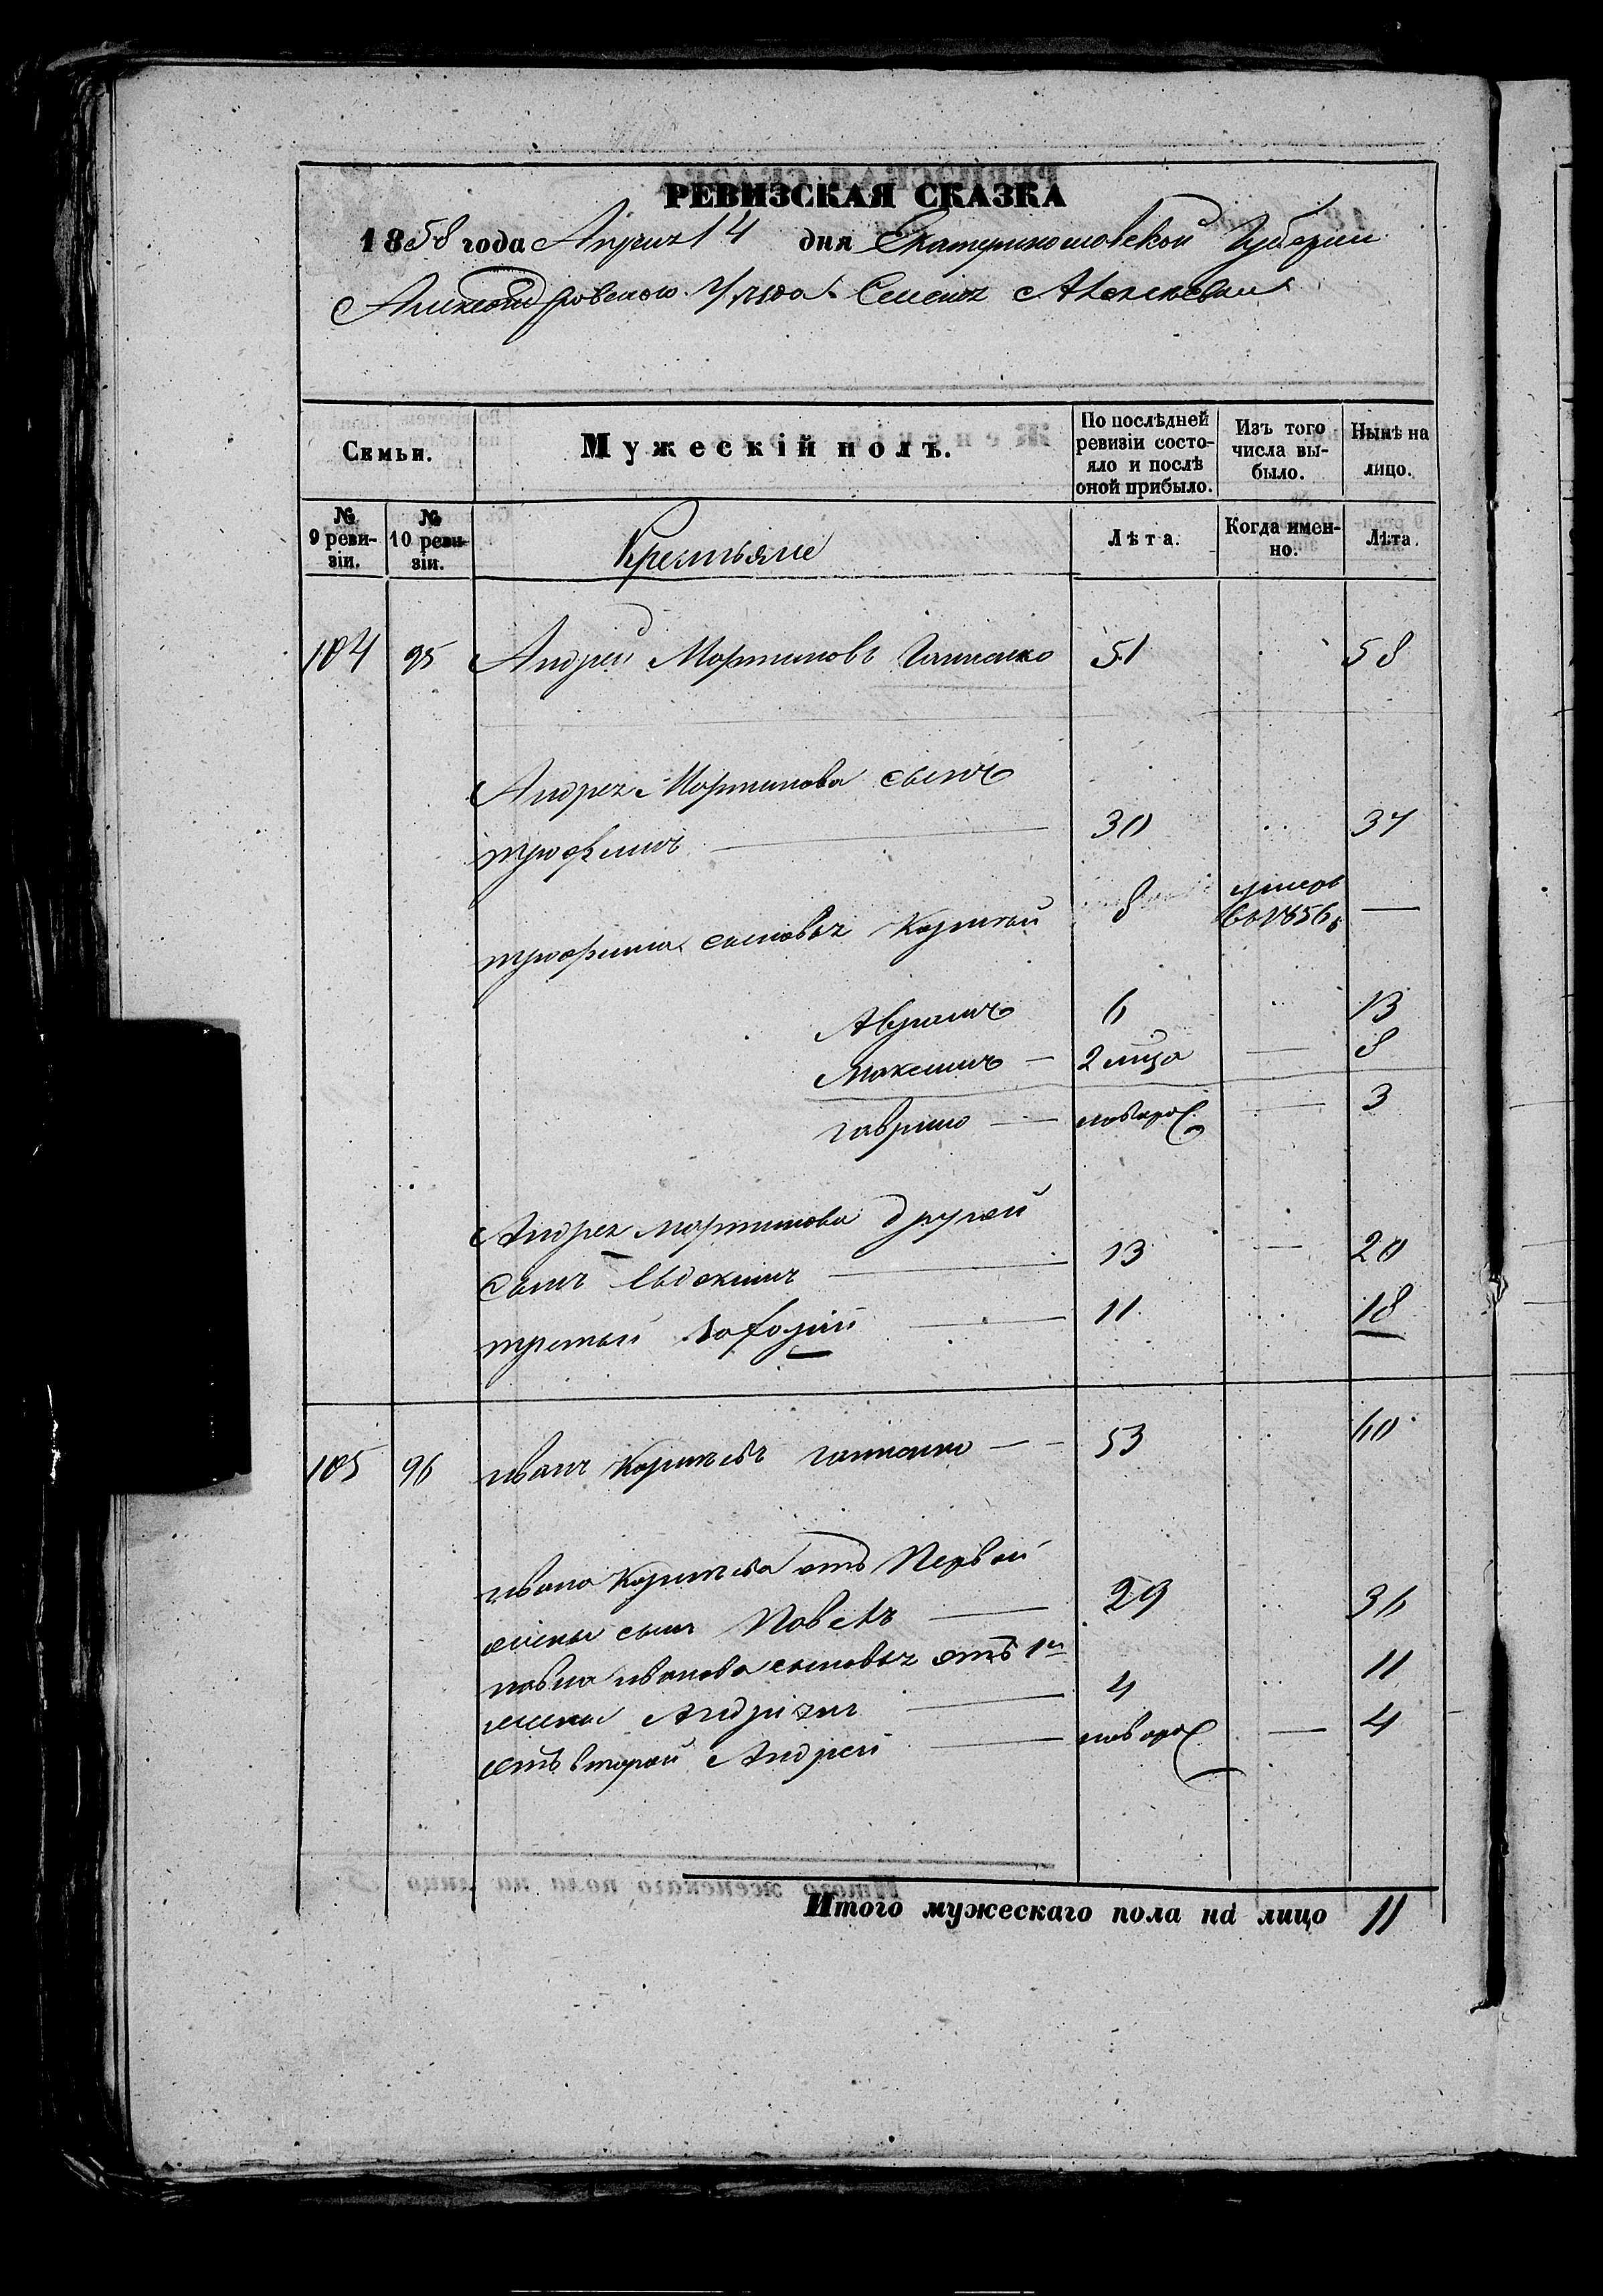 РЕВИЗСКАЯ СКАЗКА
1858 года Апреля 14 дня Екатеринославской Губернии
Александровского Уезда Селения Алексеевки
Семьи.
Мужескій полъ.
По послѣдней ревизіи состояло и послѣ оной прибыло.
Изъ того числа выбыло.
Нынѣ на лицо.
№ 9 ревизіи.
№ 10 ревизіи.
Крестьяне
Лѣта.
Когда именно.
Лѣта.
104 95 Андрей Мартиновъ 51 58
Андрея Мартинова сынъ
трофимъ 30 37
трофима сыновья Корнѣй 8 умеръ въ 1856 —
Аврамъ 6 13
Максимъ — 2 мѣсяца — 8
гаврило — новорож — 3
Андрея мартинова другой
сынъ Евдокимъ 13 — 20
третий 11 18
105 96 иванъ Корнѣевъ — 53 60
ивана Корнѣева отъ Первой
жены сынъ Павелъ 29 36
павла иванова сыновья отъ 1й
жены 4 11
отъ второй Андрей новорож — 4
Итого мужескаго пола на лицо 11